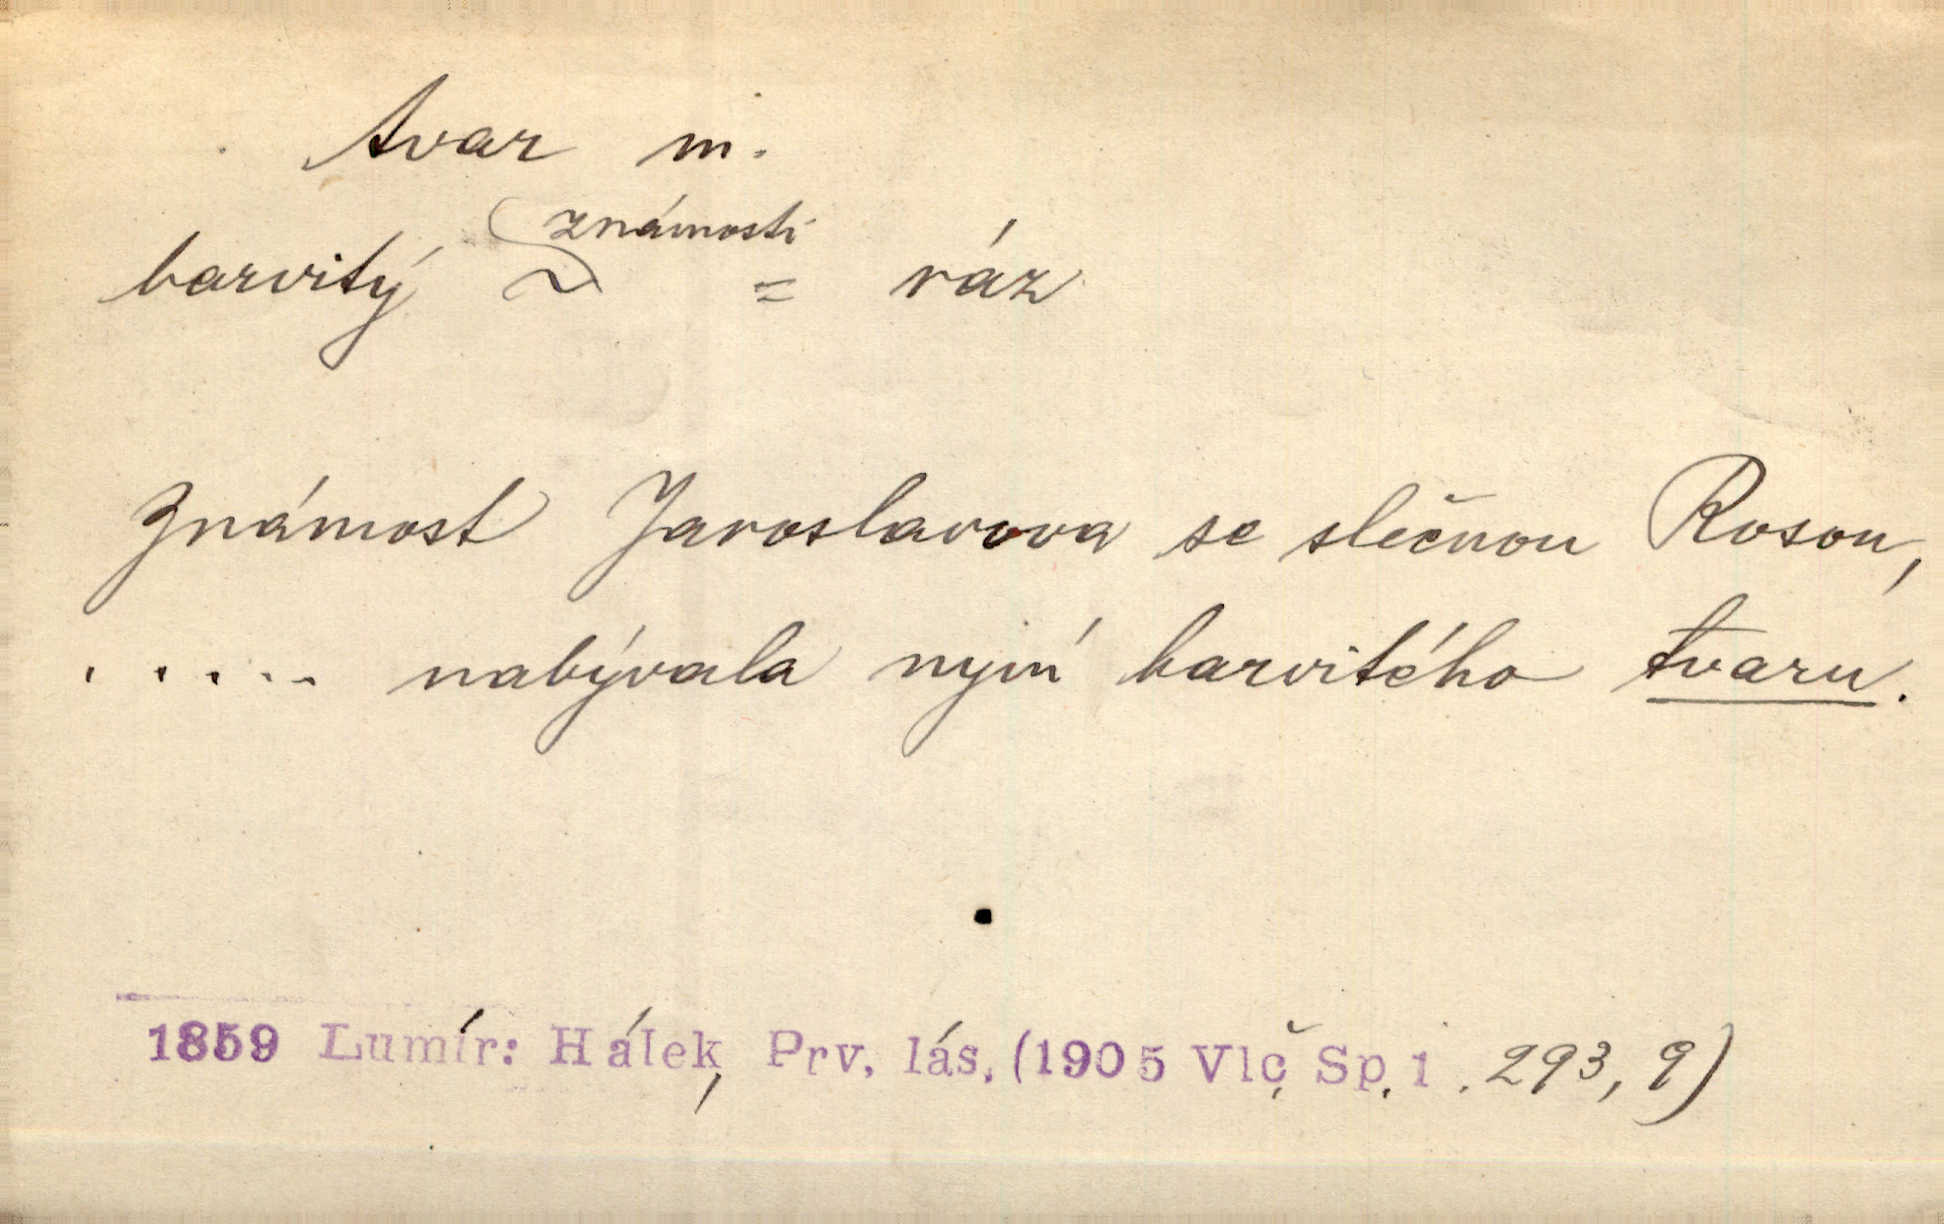 tvar m.
známosti
barvitý ~ = ráz
Známost Jaroslavova se slečnou Roson,
..... nabývala nyní barvitého tvaru.
1859 Lumír: Hálek, Prv. lás. (1905 Vlč. Sp. 1. 293, 9)